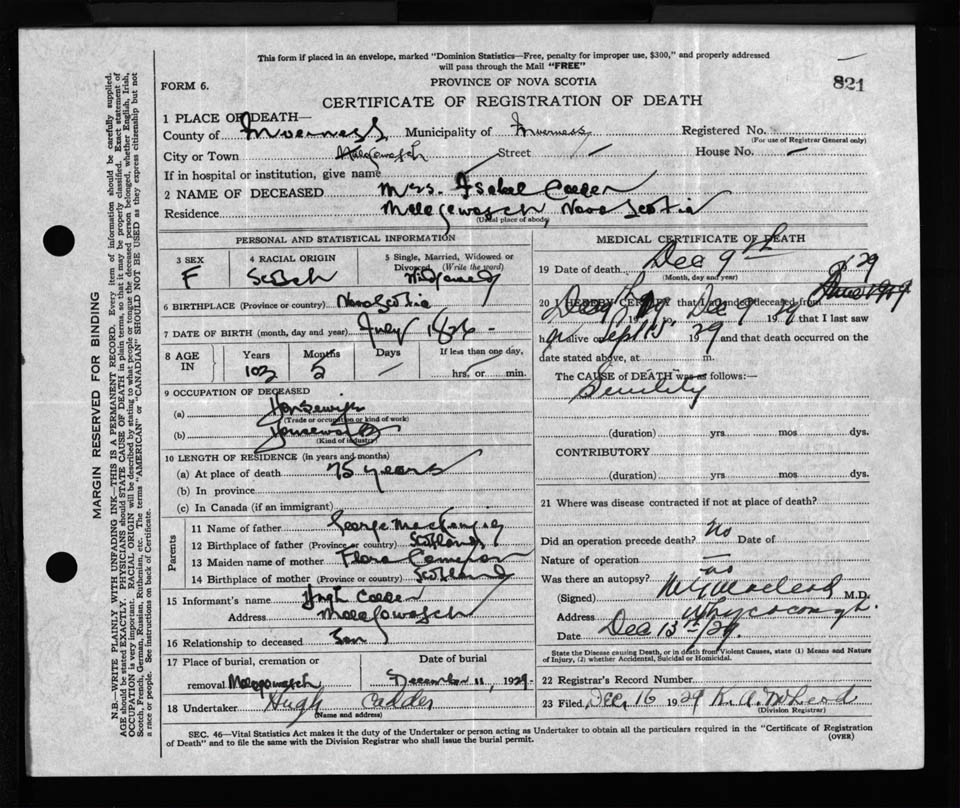 This form if placed in an envelope, marked "Dominion Statistics—Free, penalty for improper use, $300," and properly addressed
will pass through the Mail "FREE"
FORM 6.
PROVINCE OF NOVA SCOTIA
821
CERTIFICATE OF REGISTRATION OF DEATH
1 PLACE OF DEATH—
County of Inverness Municipality of Inverness Registered No.
(For use of Registrar General only)
City or Town Malagawatch Street — House No. —
If in hospital or institution, give name
2 NAME OF DECEASED Mrs. Isabel
Residence Malagawatch Nova Scotia
(Usual place of abode)
PERSONAL AND STATISTICAL INFORMATION
3 SEX 4 RACIAL ORIGIN 5 Single, Married, Widowed or
Divorced (Write the word)
F Scotch
6 BIRTHPLACE (Province or country) Nova Scotia
7 DATE OF BIRTH (month, day and year) July 1826 -
8 AGE IN Years Months Days If less than one day,
102 2 — hrs. or min.
9 OCCUPATION OF DECEASED
(a) Housewife
(Trade or occupation or kind of work)
(b) Housework
(Kind of industry)
10 LENGTH OF RESIDENCE (in years and months)
(a) At place of death 75 years
(b) In province
(c) In Canada (if an immigrant)
Parents
11 Name of father George MacKenzie
12 Birthplace of father (Province or country) Scotland
13 Maiden name of mother Flora Cameron
14 Birthplace of mother (Province or country) Scotland
15 Informant's name Hugh
Address Malagawatch
16 Relationship to deceased Son
17 Place of burial, cremation or Date of burial
removal Malagawatch December 11, 1929.
18 Undertaker Hugh
(Name and address)
MEDICAL CERTIFICATE OF DEATH
19 Date of death Dec 9th 29
(Month, day and year)
20 I HEREBY CERTIFY that I attended deceased from
Dec 9 29 that I last saw
alive on Sept 15 1929 and that death occurred on the
date stated above, at m.
The CAUSE of DEATH was as follows:—
Senility
(duration) yrs mos dys.
CONTRIBUTORY
(duration) yrs mos dys.
21 Where was disease contracted if not at place of death?
Did an operation precede death? No Date of
Nature of operation —
Was there an autopsy? no
(Signed) MacLeod M.D.
Address Whycocomagh.
Date Dec 13th/29.
State the Disease causing Death, or in death from Violent Causes, state (1) Means and Nature
of Injury, (2) whether Accidental, Suicidal or Homicidal.
22 Registrar's Record Number
23 Filed, Dec, 16 1929 K. A. McLeod
(Division Registrar)
SEC. 46—Vital Statistics Act makes it the duty of the Undertaker or person acting as Undertaker to obtain all the particulars required in the "Certificate of Registration
of Death" and to file the same with the Division Registrar who shall issue the burial permit.
(OVER)
MARGIN RESERVED FOR BINDING
N.B.—WRITE PLAINLY WITH UNFADING INK—THIS IS A PERMANENT RECORD. Every item of information should be carefully supplied.
AGE should be stated EXACTLY. PHYSICIANS should STATE CAUSE OF DEATH in plain terms, so that it may be properly classified. Exact statement of
OCCUPATION is very important. RACIAL ORIGIN will be described by stating to what people or tongue the deceased person belonged, whether English, Irish,
Scotch, French, German, Russian, Ruthenian, etc. The terms "AMERICAN" or "CANADIAN" SHOULD NOT BE USED as they express citizenship but not
a race or people. See instructions on back of Certificate.